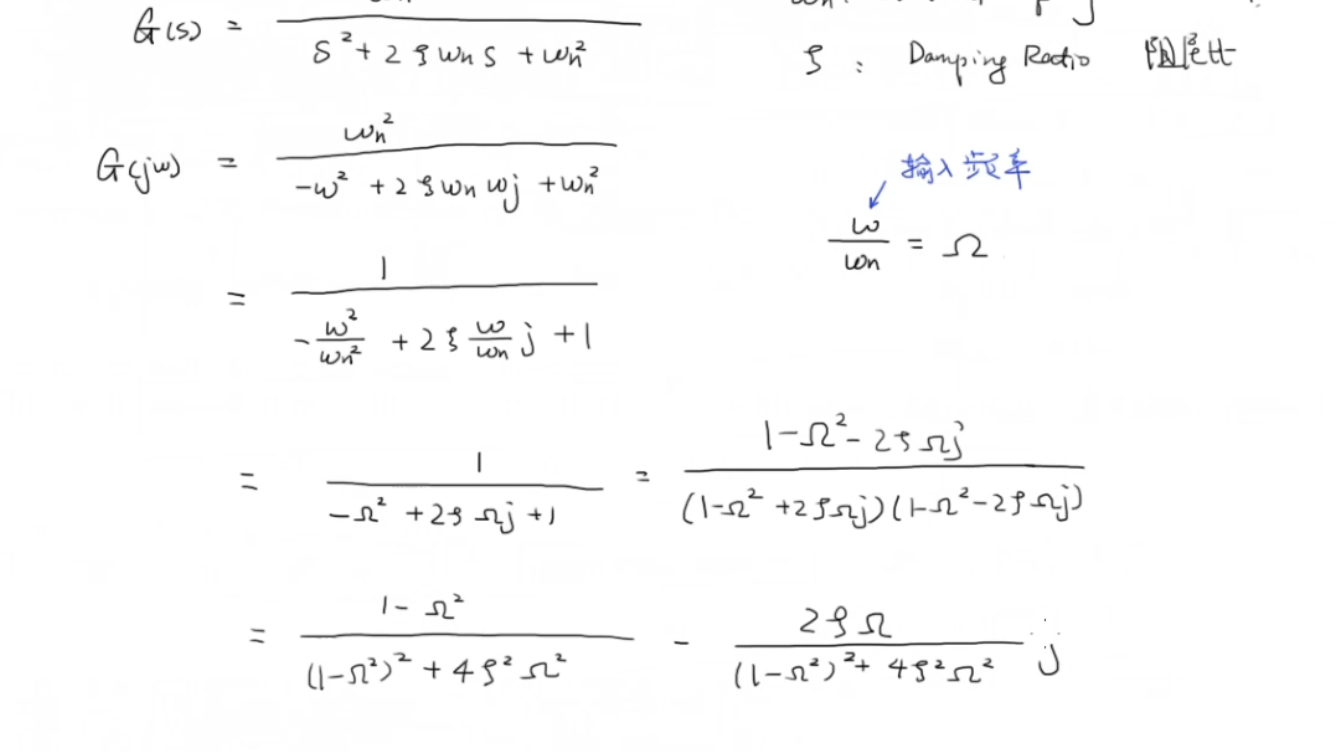 G(s) = / s² + 2ζωn s + ωn²
ζ : Damping Ratio 阻尼比
G(jω) = ωn² / -ω² + 2ζωn ωj + ωn²
输入频率
ω / ωn = Ω
= 1 / -ω²/ωn² + 2ζ ω/ωn j + 1
= 1 / -Ω² + 2ζΩj + 1 = 1-Ω²-2ζΩj / (1-Ω²+2ζΩj)(1-Ω²-2ζΩj)
= 1-Ω² / (1-Ω²)² + 4ζ²Ω² - 2ζΩ / (1-Ω²)² + 4ζ²Ω² j